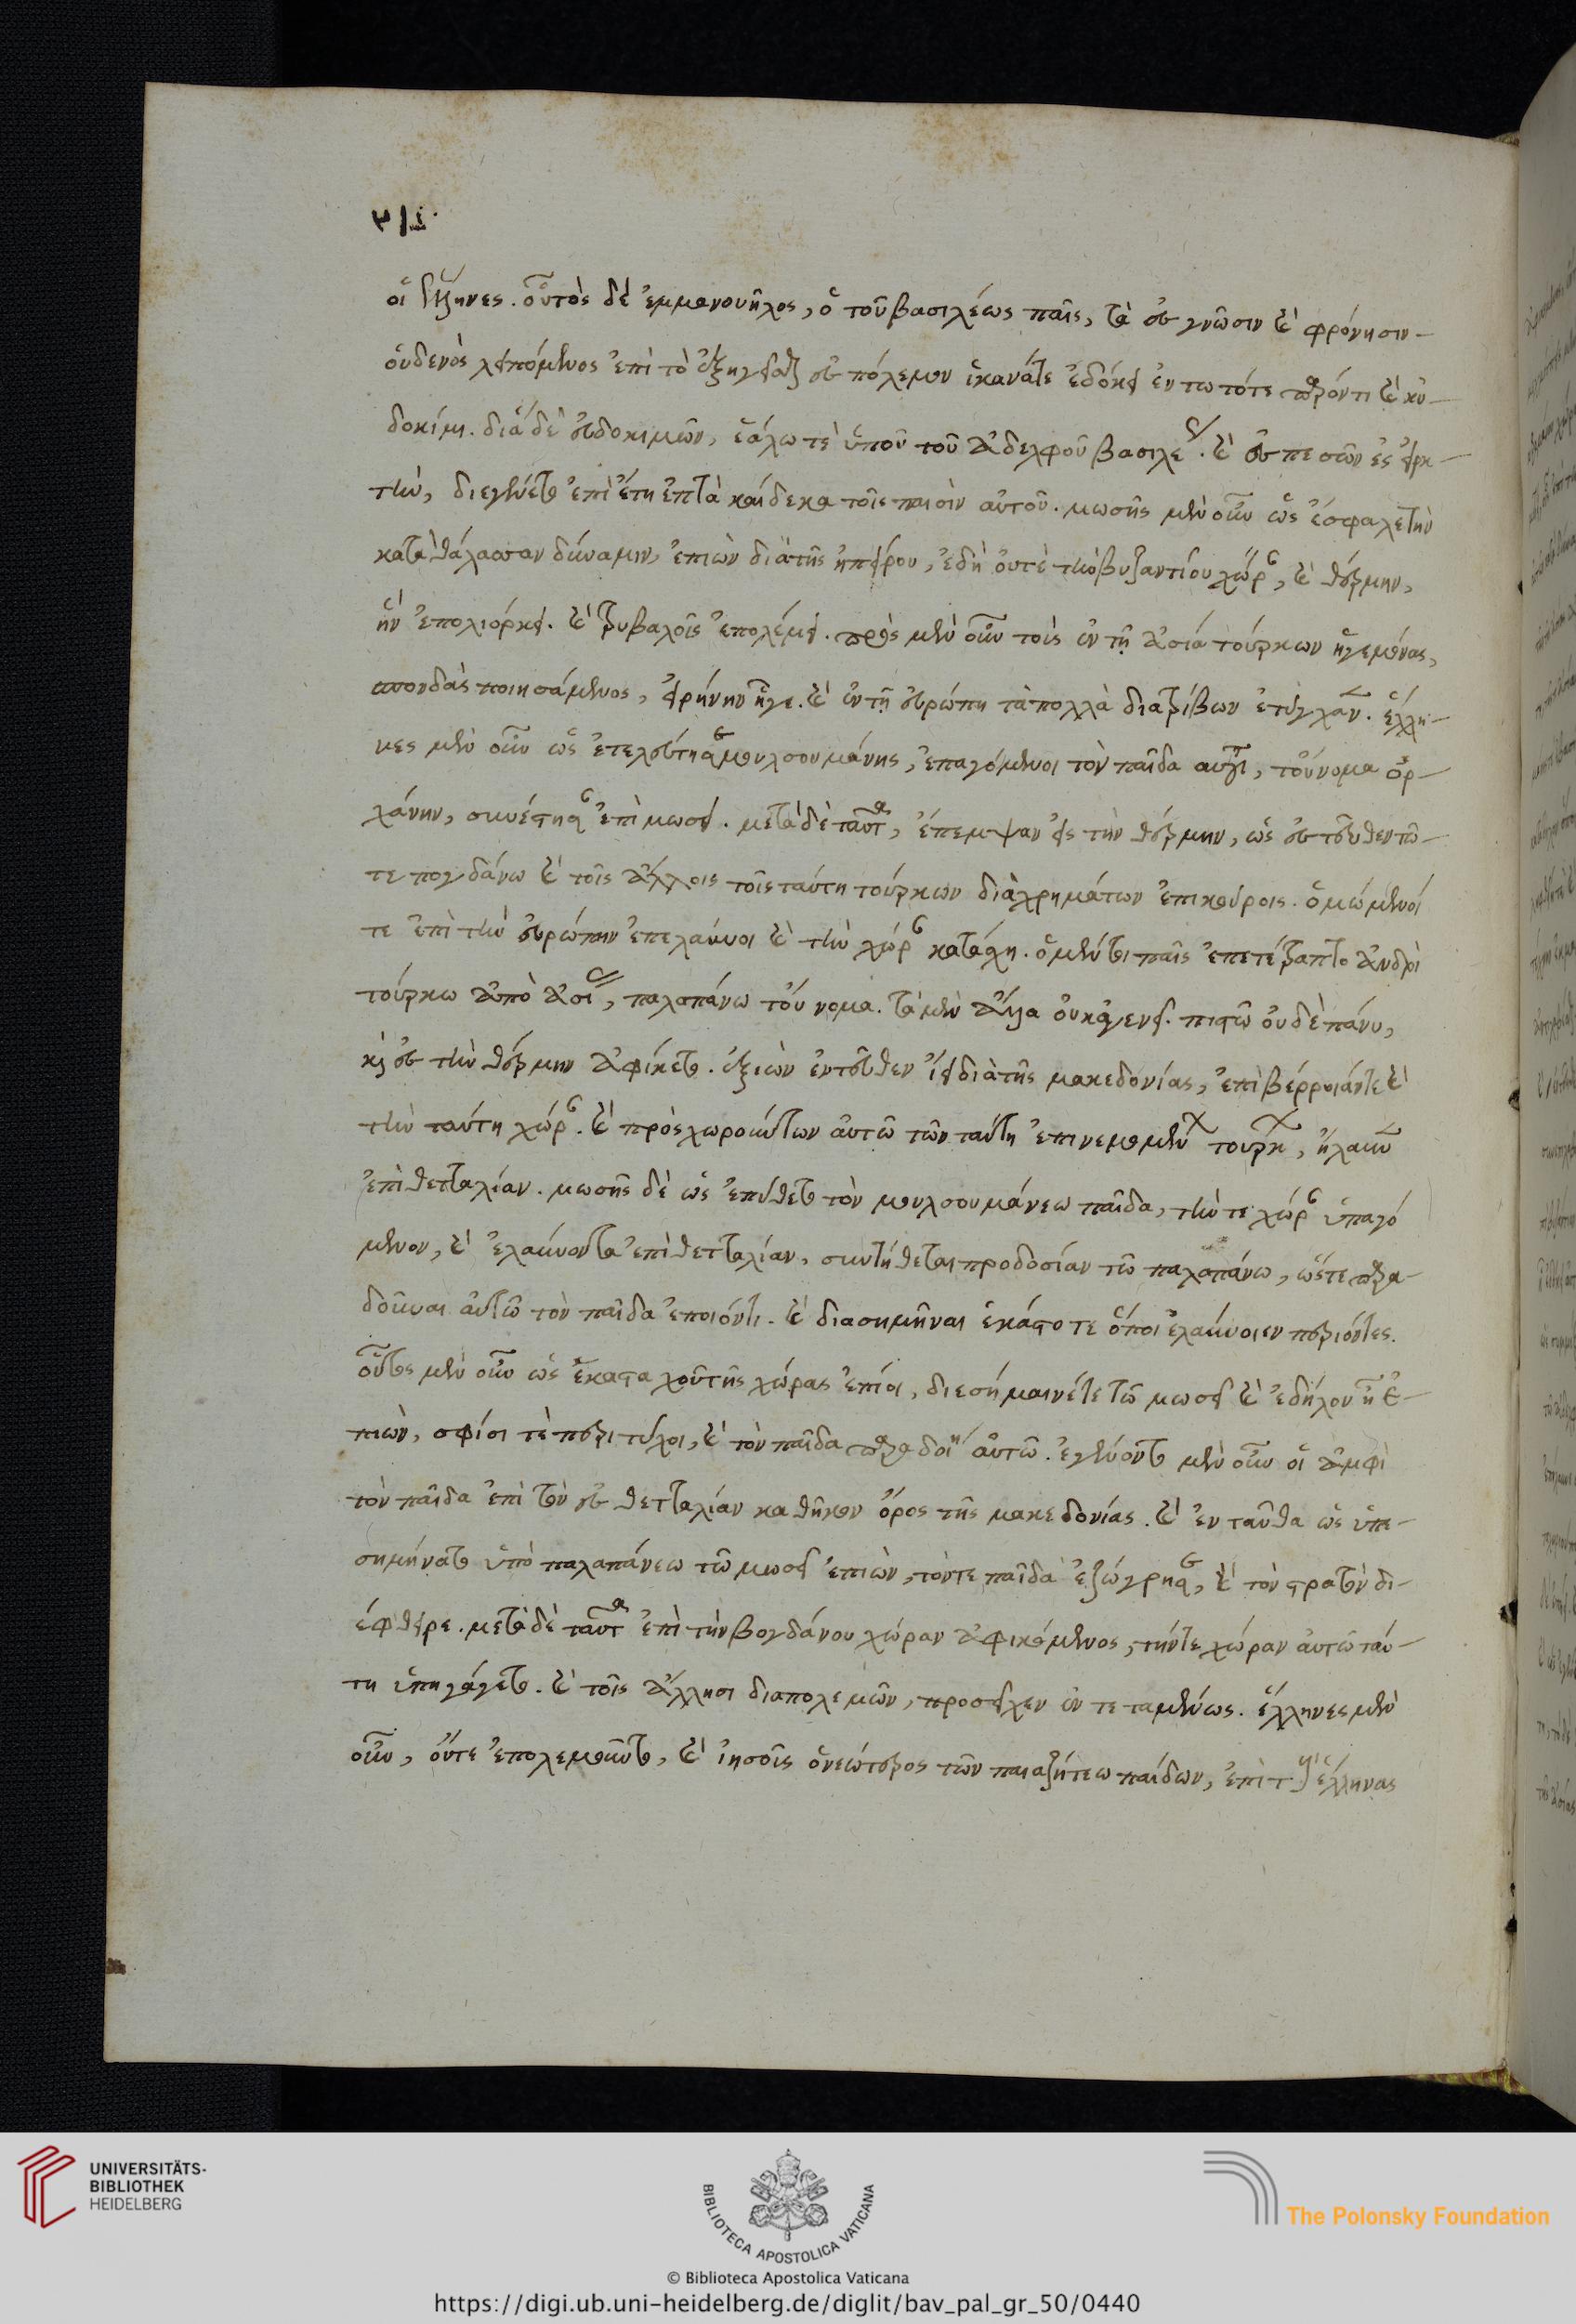 οἱ ἕλληνες. οὗτος δὲ ἐμμανουῆλος, ὁ τοῦ βασιλέως παῖς, τὰ ἐς γνῶσιν καὶ φρόνησιν
οὐδενὸς λειπόμενος ἐπὶ τὸ ἐξηγεῖσθαι ἐς πόλεμον ἱκανός τε ἐδόκει ἐν τω τότε παρόντι καὶ εὐ-
δοκίμει. διὰ δὲ εὐδοκιμῶν, ἑάλω τὲ ὑπὸ τοῦ ἀδελφοῦ βασιλέως. καὶ ἐμπεσὼν ἐς εἱρκ-
τὴν, διεγένετο ἐπὶ ἔτη ἑπτὰ καίδεκα τοῖς παισὶν αὐτοῦ. μωσῆς μὲν οὖν ὡς ἐσφάλε τὴν
κατὰ θάλασσαν δύναμιν, ἐπιὼν διὰ τῆς ἠπείρου, ἐδῄου τὲ τὴν βυζαντίου χώραν, καὶ θέρμην,
ἣν ἐπολιόρκει. καὶ τριβαλοῖς ἐπολέμει. πρὸς μὲν οὖν τοὺς ἐν τῇ ἀσία τούρκων ἡγεμόνας,
σπονδὰς ποιησάμενος, εἰρήνην ἦγε. καὶ ἐν τῇ εὐρώπη τὰ πολλὰ διατρίβων ἐτύγχανεν. ἕλλη-
νες μὲν οὖν ὡς ἐτελεύτησε μουλσουμάνης, ἐπαγόμενοι τὸν παῖδα αὐτοῦ, τοὔνομα ὀρ-
χάνην, συνέστησαν ἐπὶ μωσεῖ. μετὰ δὲ ταῦτα, ἔπεμψαν εἰς τὴν θέρμην, ὡς ἐντεῦθεν τῶ
τε πογδάνω καὶ τοῖς ἄλλοις τοῖς ταύτη τούρκων διὰ χρημάτων ἐπικούροις. ὁμώμενοί
τε ἐπὶ τὴν εὐρώπην ἐπελαύνοι καὶ τὴν χώραν κατάσχη. ὁ μέντοι παῖς ἐπετέτραπτο ἀνδρὶ
τούρκω ἀπὸ ἀσίας, παλαπάνω τοὔνομα. τὰ μὲν ἄλλα οὐκ ἀγενεῖ. πιστῶ οὐδὲ πάνυ,
καὶ ἐς τὴν θέρμην ἀφίκετο. ἐξιὼν ἐντεῦθεν ἤει διὰ τῆς μακεδονίας, ἐπὶ βέρροιάν τε καὶ
τὴν ταύτη χώραν. καὶ προσχωρούντων αὐτῶ τῶν ταύτη ἐπινεμομένων τούρκων, ἤλαυνεν
ἐπὶ θετταλίαν. μωσῆς δὲ ὡς ἐπύθετο τὸν μουλσουμάνεω παῖδα, τήν τε χώραν ὑπαγό
μενον, καὶ ἐλαύνοντα ἐπὶ θετταλίαν, συντίθεται προδοσίαν τῶ παλαπάνω, ὥστε παρα-
δοῦναι αὐτῶ τὸν παῖδα ἐπιόντι. καὶ διασημῆναι ἑκάστοτε ὅποι ἐλαύνοιεν περιόντες.
οὗτος μὲν οὖν ὡς ἑκασταχοῦ τῆς χώρας ἐπίοι, διεσήμαινέ τε τῶ μωσεῖ καὶ ἐδήλου ᾗ ἐ-
πιὼν, σφίσι τὲ περιτύχοι, καὶ τὸν παῖδα παραδοίη αὐτῶ. ἐγένοντο μὲν οὖν οἱ ἀμφὶ
τὸν παῖδα ἐπὶ τὸν ἐς θετταλίαν καθῆκον ὄρος τῆς μακεδονίας. καὶ ἐνταῦθα ὡς ὑπε-
σημήνατο ὑπὸ παλαπάνεω τῶ μωσεῖ ἐπιὼν, τόν τε παῖδα ἐζώγρησε, καὶ τὸν στρατὸν δι-
έφθειρε. μετὰ δὲ ταῦτα ἐπὶ τὴν βογδάνου χώραν ἀφικόμενος, τήν τε χώραν αὐτῶ ταύ-
τη ὑπηγάγετο. καὶ τοῖς ἄλλησι διαπολεμῶν, προσεῖχεν ἐντεταμένως. ἕλληνες μὲν
οὖν, οὔτε ἐπολεμοῦντο, καὶ ἰησοῦς ὁ νεώτερος τῶν παιαζήτεω παίδων, ἐπὶ τοὺς ἕλληνας
UNIVERSITÄTS-
BIBLIOTHEK
HEIDELBERG
BIBLIOTECA APOSTOLICA VATICANA
The Polonsky Foundation
© Biblioteca Apostolica Vaticana
https://digi.ub.uni-heidelberg.de/diglit/bav_pal_gr_50/0440